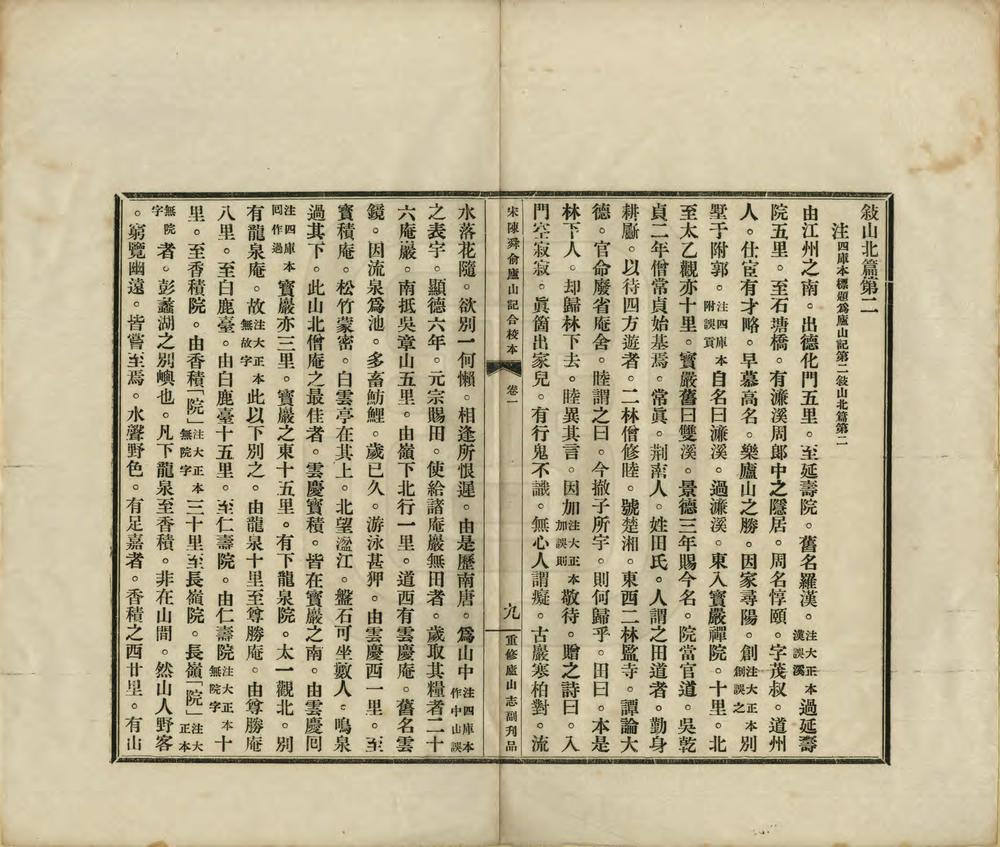 敍山北篇第二
注四庫本標題爲廬山記第二敍山北篇第二
由江州之南。出德化門五里。至延壽院。舊名羅漢。注大正本漢誤溪過延壽
院五里。至石塘橋。有濂溪周郎中之隱居。周名惇頤。字茂叔。道州
人。仕宦有才略。早慕高名。樂廬山之勝。因家尋陽。創注大正本創誤之別
墅于附郭。注四庫本附誤貢自名曰濂溪。過濂溪。東入寶嚴禪院。十里。北
至太乙觀亦十里。寶嚴舊曰雙溪。景德三年賜今名。院當官道。吳乾
貞二年僧常貞始基焉。常眞。荆南人。姓田氏。人謂之田道者。勤身
耕斸。以待四方遊者。二林僧修睦。號楚湘。東西二林監寺。譚論大
德。官命廢省庵舍。睦謂之曰。今撤子所宇。則何歸乎。田曰。本是
林下人。却歸林下去。睦異其言。因加注大正本加誤則敬待。贈之詩曰。入
門空寂寂。眞箇出家兒。有行鬼不識。無心人謂癡。古巖寒柏對。流
宋陳舜俞廬山記合校本 卷一 九 重修廬山志副刊品
水落花隨。欲別一何懶。相逢所恨遲。由是歷南唐。爲山中注四庫本作中山誤
之表宇。顯德六年。元宗賜田。使給諸庵巖無田者。歲取其糧者二十
六庵巖。南抵吳章山五里。由嶺下北行一里。道西有雲慶庵。舊名雲
鏡。因流泉爲池。多畜魴鯉。歲已久。游泳甚狎。由雲慶西一里。至
寶積庵。松竹蒙密。白雲亭在其上。北望湓江。盤石可坐數人。鳴泉
過其下。此山北僧庵之最佳者。雲慶寶積。皆在寶嚴之南。由雲慶囘
注四庫本囘作過寶嚴亦三里。寶嚴之東十五里。有下龍泉院。太一觀北。別
有龍泉庵。故注大正本無故字此以下別之。由龍泉十里至尊勝庵。由尊勝庵
八里。至白鹿臺。由白鹿臺十五里。至仁壽院。由仁壽院注大正本無院字十
里。至香積院。由香積「院」注大正本無院字三十里至長嶺院。長嶺「院」注大正本
無院字者。彭蠡湖之別嶼也。凡下龍泉至香積。非在山間。然山人野客
。窮覽幽遠。皆嘗至焉。水聲野色。有足嘉者。香積之西廿里。有山